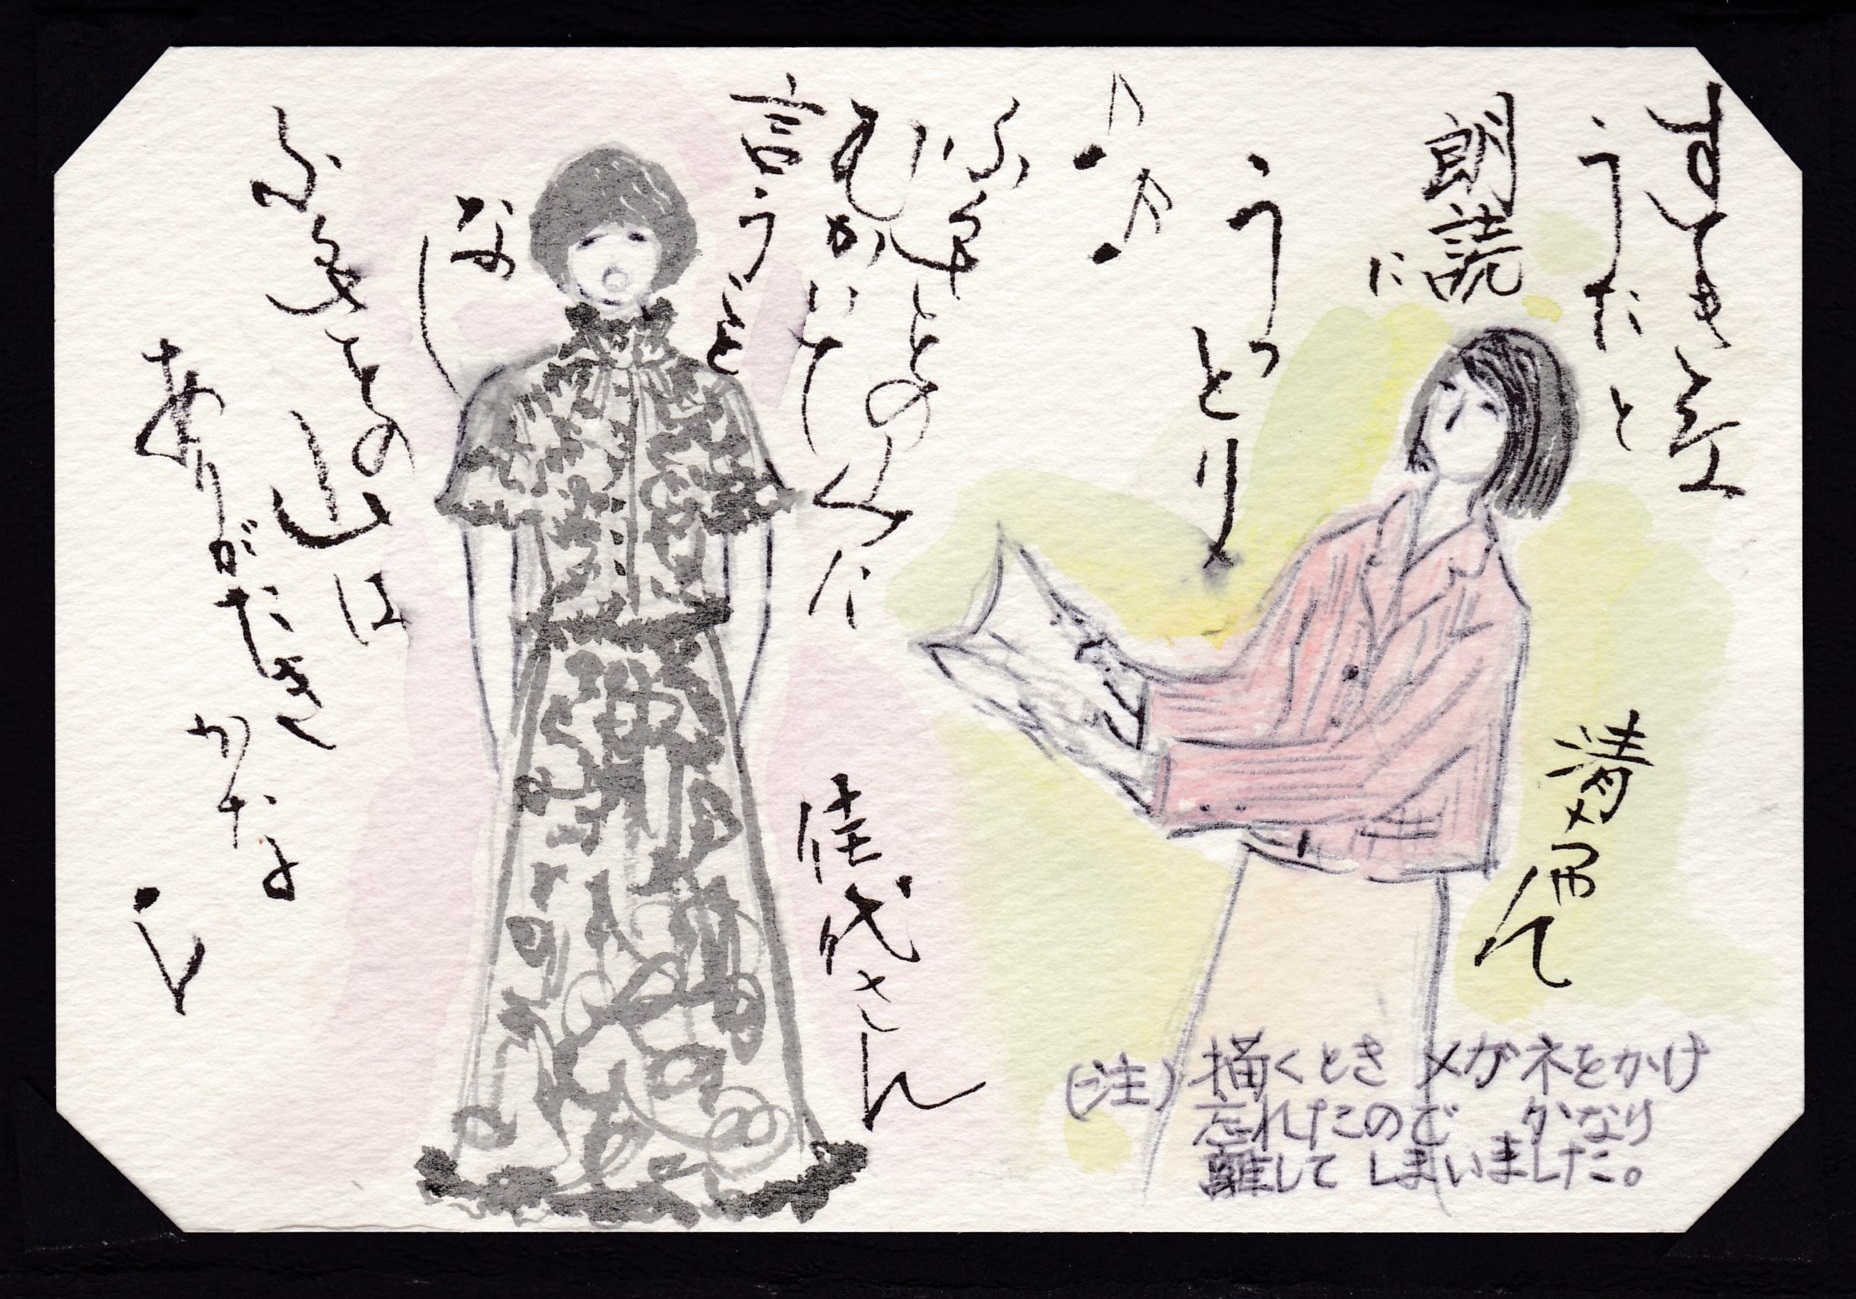 すてきな
うたと
朗読に
うっとり
ふるさとの山に
むかいて
言うこと
なし
ふるさとの山は
ありがたき
かな
佳代さん
(注) 描くとき メガネをかけ
忘れたので かなり
離して しまいました。